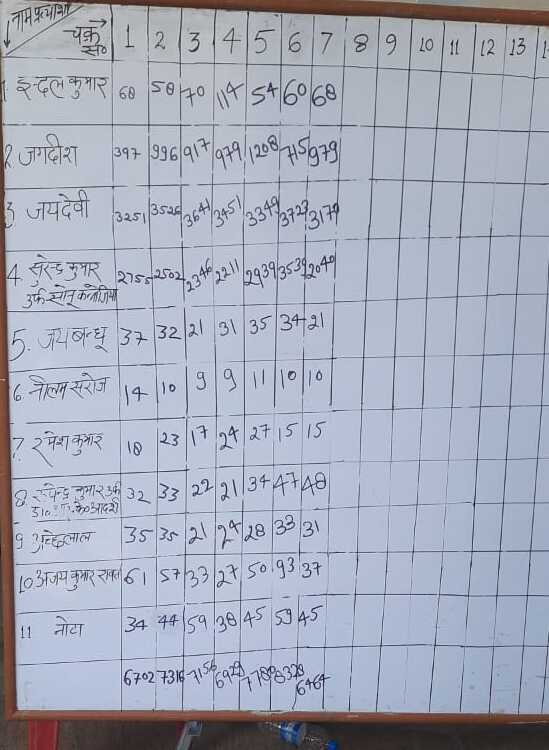 नाम प्रत्याशी
चक्र सं० 1 2 3 4 5 6 7 8 9 10 11 12 13
1 इन्दल कुमार 68 58 70 114 54 60 68
2 जगदीश 397 996 917 979 1208 715 979
3 जयदेवी 3251 3526 3641 3451 3349 3723 3179
4. सुरेन्द्र कुमार 2755 2502 2346 2211 2939 3539 2040
उर्फ सोनू कनौजिया
5. जयबन्धू 37 32 21 31 35 34 21
6 नीलम सरोज 14 10 9 9 11 10 10
7. रमेश कुमार 18 23 17 24 27 15 15
8. कुमार उर्फ 32 33 22 21 34 47 48
डा० के० आदर्श
9 35 35 21 24 28 33 31
10 अजय कुमार रावत 61 57 33 27 50 93 37
11 नोटा 34 44 59 38 45 59 45
6702 7316 7156 6929 8328 6464